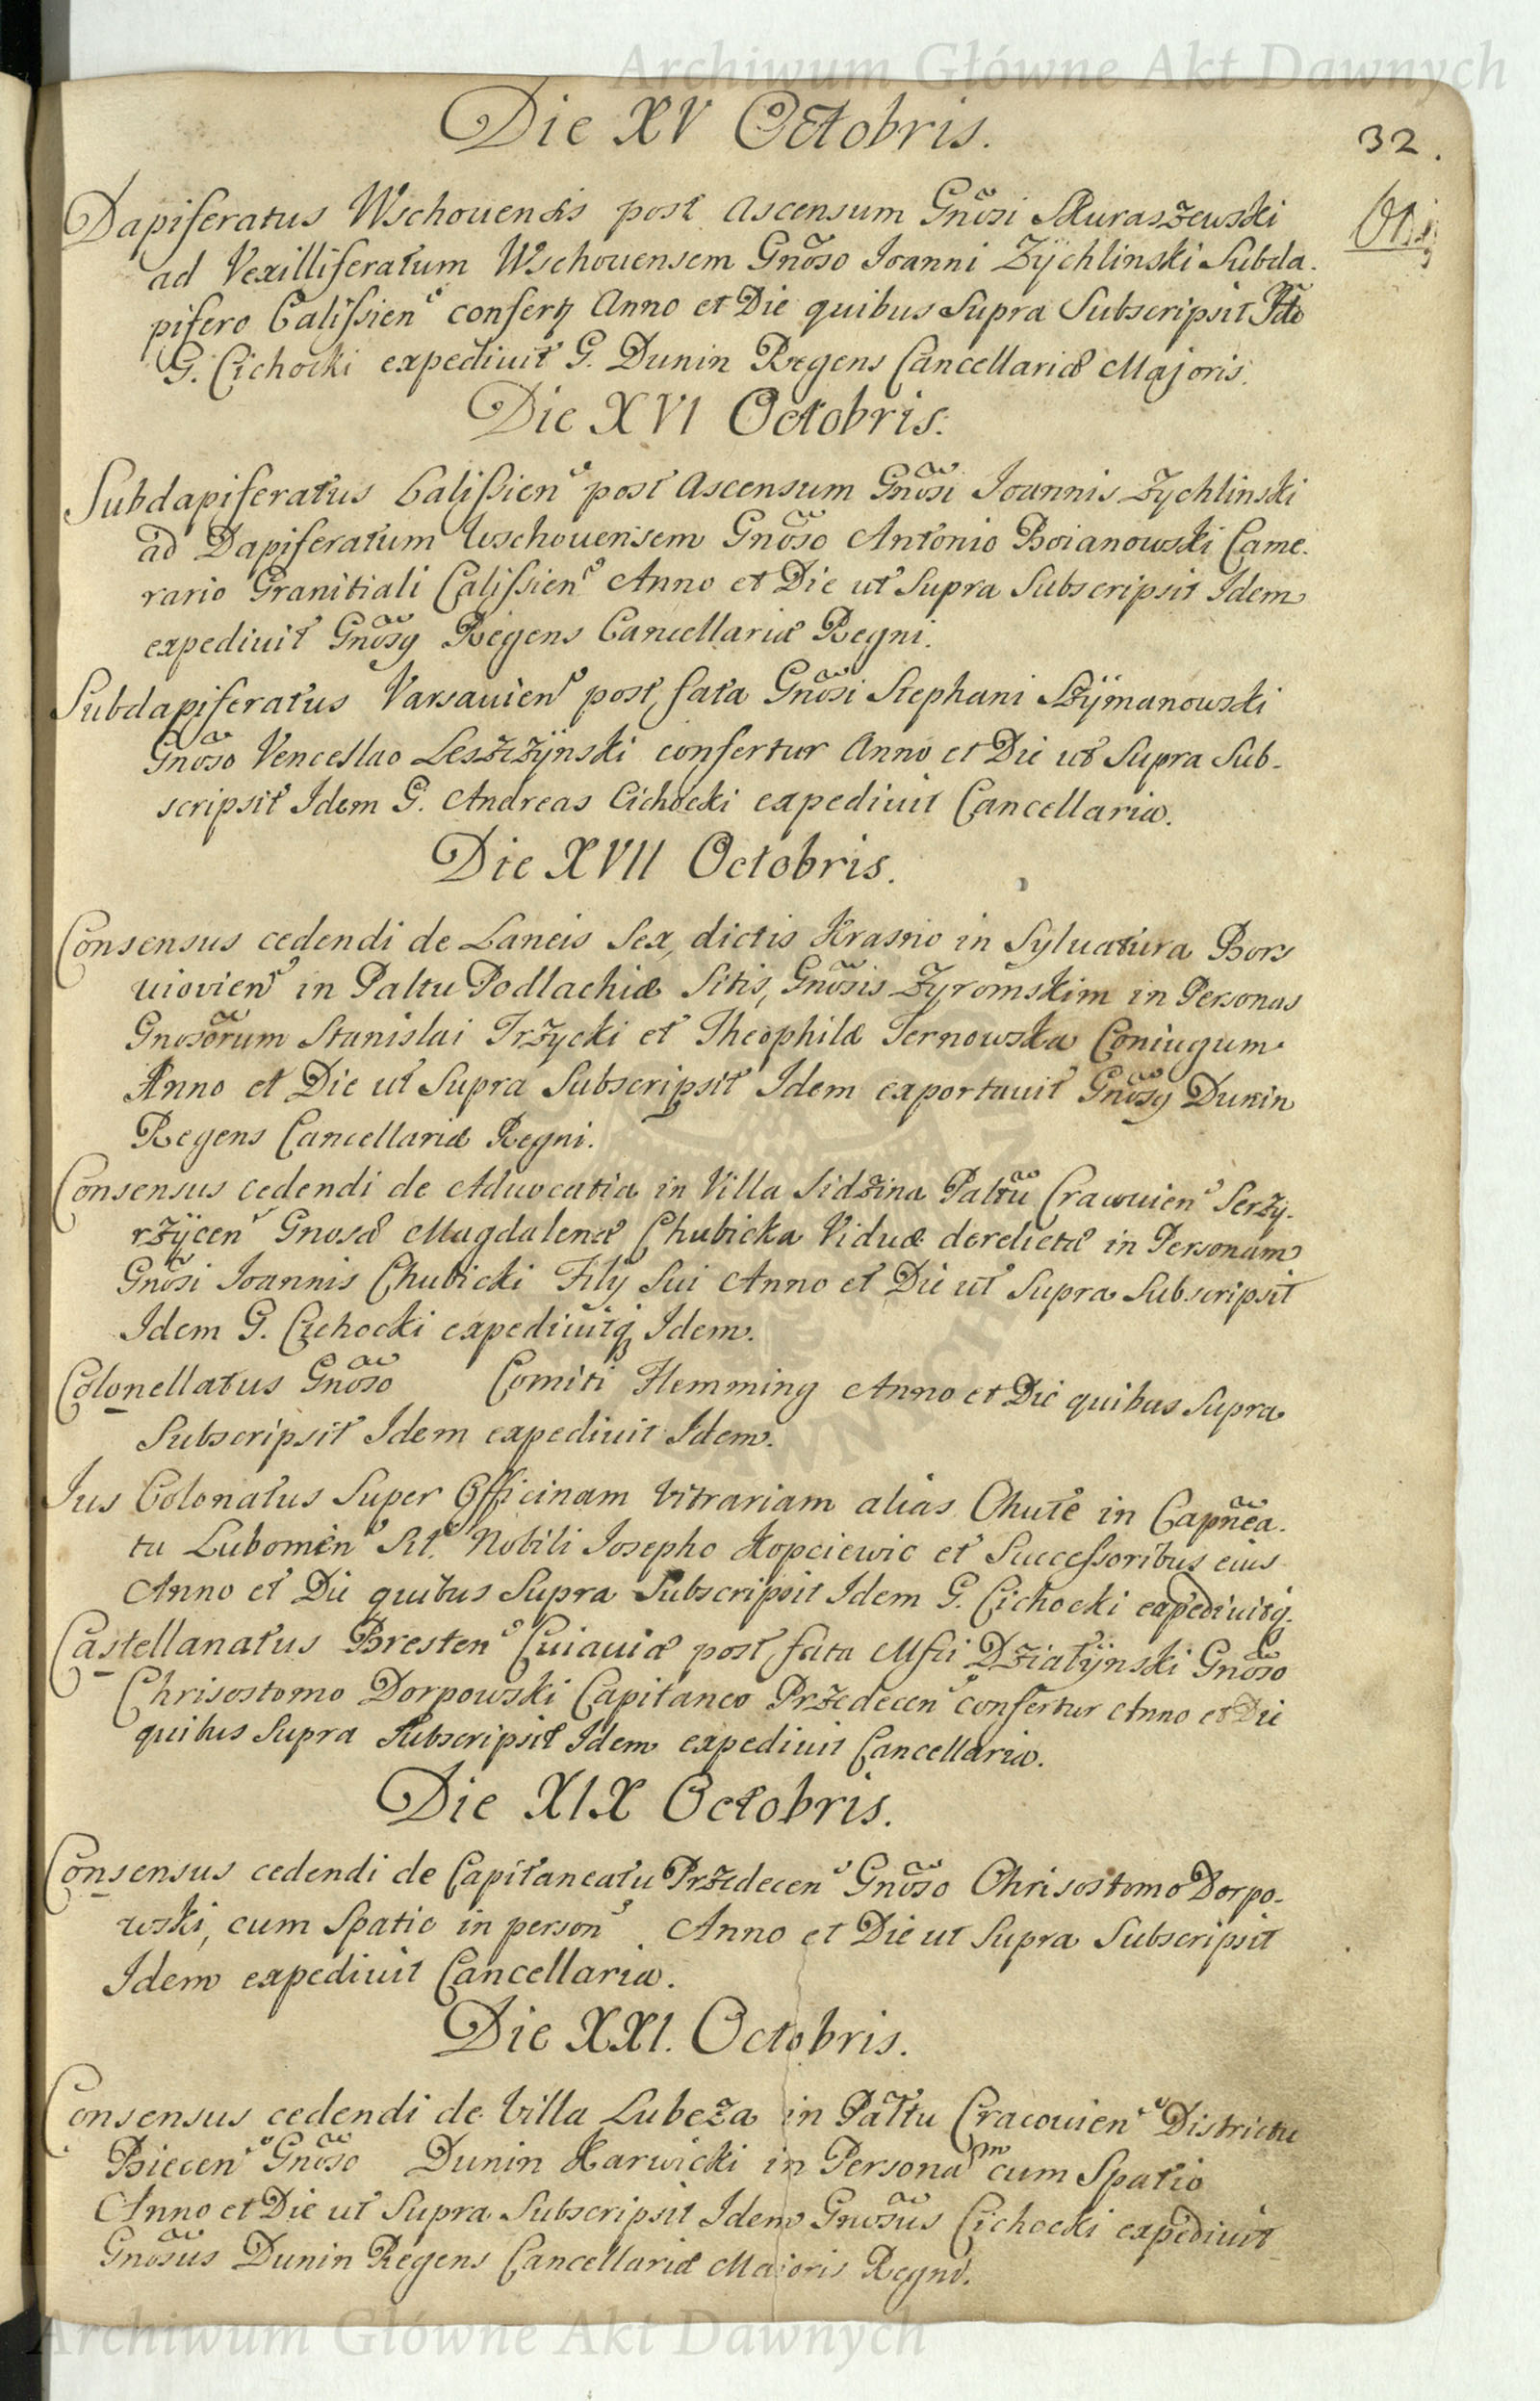 Archiwum Główne Akt Dawnych
Die XV Octobris.
32.
Dapiferatus Wschouensis post ascensum Gnõsi Skuraszewski
ad Vexilliferatum Wschouensem Gnõso Ioanni Zÿchlinski Subda.
pifero Calissien̄ confert̄ Anno et Die quibus Supra Subscripsit
G. Cichocki expediuit G. Dunin Regens Cancellariæ Majoris.
Die XVI Octobris.
Subdapiferatus Calissien̄ post ascensum Gnõsi Ioannis Zychlinski
ad Dapiferatum Wschouensem Gnõso Antonio Boianowski Came.
rario Granitiali Calissien̄ Anno et Die ut Supra Subscripsit Idem
expediuit Gnõsg Regens Cancellariæ Regni.
Subdapiferatus Varsauien̄ post fata Gnõsi Stephani Szÿmanowski
Gnõso Venceslao Leszczÿnski confertur Anno et Die ut Supra Sub-
scripsit Idem G. Andreas Cichocki expediuit Cancellaria.
Die XVII Octobris.
Consensus cedendi de Laneis Sex, dictis Krasno in Syluatura Bors
uiovien̄ in Paltu Podlachiæ Sitis, Gnõsis Zyromskim in Personas
Gnosõrum Stanislai Trzycki et Theophilæ Ternowska Coniugum
Anno et Die ut Supra Subscripsit Idem exportauit Gnõsg Dunin
Regens Cancellariæ Regni.
Consensus cedendi de Aduocatia in Villa Sidzina Paltũ Cracouien̄ Serzy.
rzÿcen̄ Gnosæ Magdalenæ Chubicka Viduæ derelictæ in Personam
Gnõsi Ioannis Chubicki Filÿ Sui Anno et Die ut Supra Subscripsit
Idem G. Cichocki expediuitq̃ Idem.
Colonellatus Gnõso Comiti Flemming Anno et Die quibus Supra
Subscripsit Idem expediuit Idem.
Ius Colonatus Super Officinam Vitrariam alias Chute in Capñea.
tu Lubomen̄ Sit. Nobili Iosepho Kopciewic et Successoribus eius
Anno et Die quibus Supra Subscripsit Idem G. Cichocki expediuitq.
Castellanatus Bresten̄ Cuiauiæ post fata Mfci Dziatÿnski Gnõso
Chrisostomo Dorpowski Capitaneo Przedecen̄ confertur Anno et Die
quibus Supra Subscripsit Idem expediuit Cancellaria.
Die XIX Octobris.
Consensus cedendi de Capitaneatu Przedecen̄ Gnõso Chrisostomo Dorpo-
wski, cum Spatio in person̄. Anno et Die ut Supra Subscripsit
Idem expediuit Cancellaria.
Die XXI. Octobris.
Consensus cedendi de Villa Lubcza in Pal̃tu Cracouien̄ Districtu
Biecen̄ Gnõso Dunin Karwicki in Personaᵐ cum Spatio
Anno et Die ut Supra Subscripsit Idem Gnõsus Cichocki expediuit
Gnõsus Dunin Regens Cancellariæ Maioris Regni.
Archiwum Główne Akt Dawnych